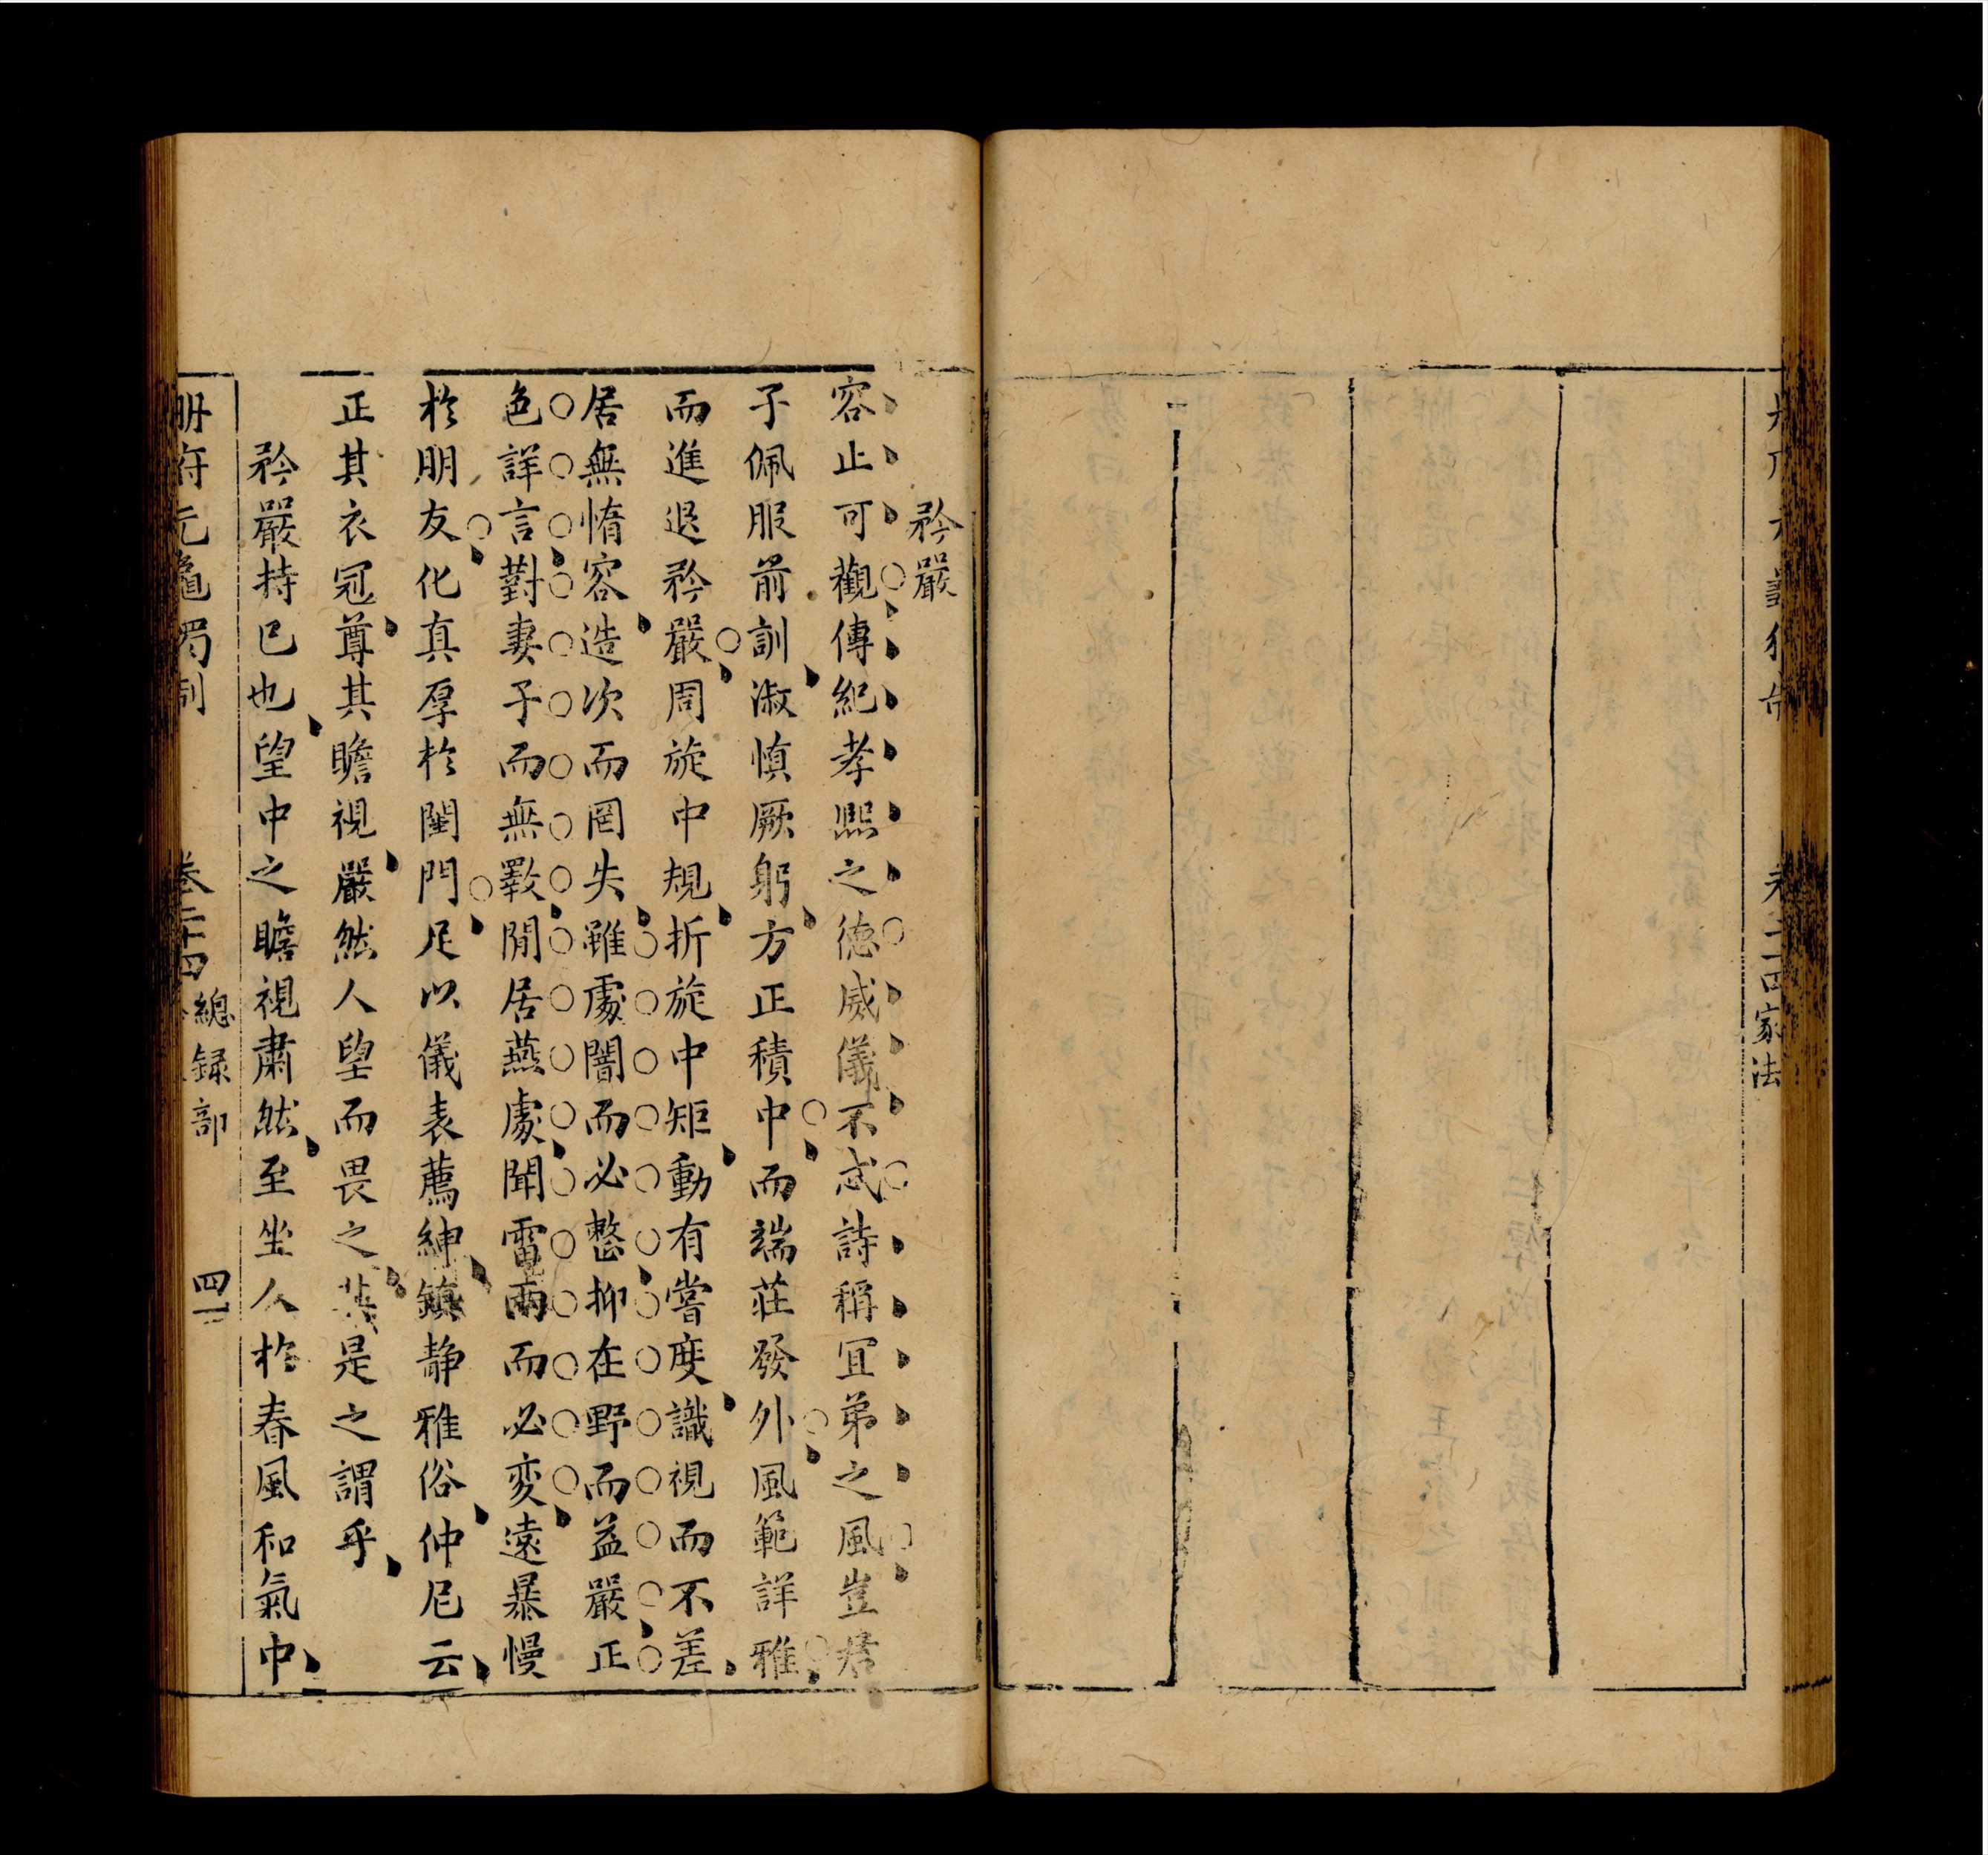 家法
矜嚴
容止可觀傳紀孝熙之德威儀不忒詩稱宜弟之風豈君
子佩服前訓淑慎厥躬方正積中而端莊發外風範詳雅
而進退矜嚴周旋中規折旋中矩動有嘗度識視而不差
居無惰容造次而罔失雖處闇而必整抑在野而益嚴正
色詳言對妻子而無斁閒居燕處聞雷雨而必变遠暴慢
於朋友化真厚於閨門足以儀表薦紳鎮静雅俗仲尼云
正其衣冠尊其瞻視嚴然人望而畏之其是之謂乎
矜嚴持已也望中之瞻視肅然至坐人於春風和氣中
册府元龜獨制
卷二十四 總録部